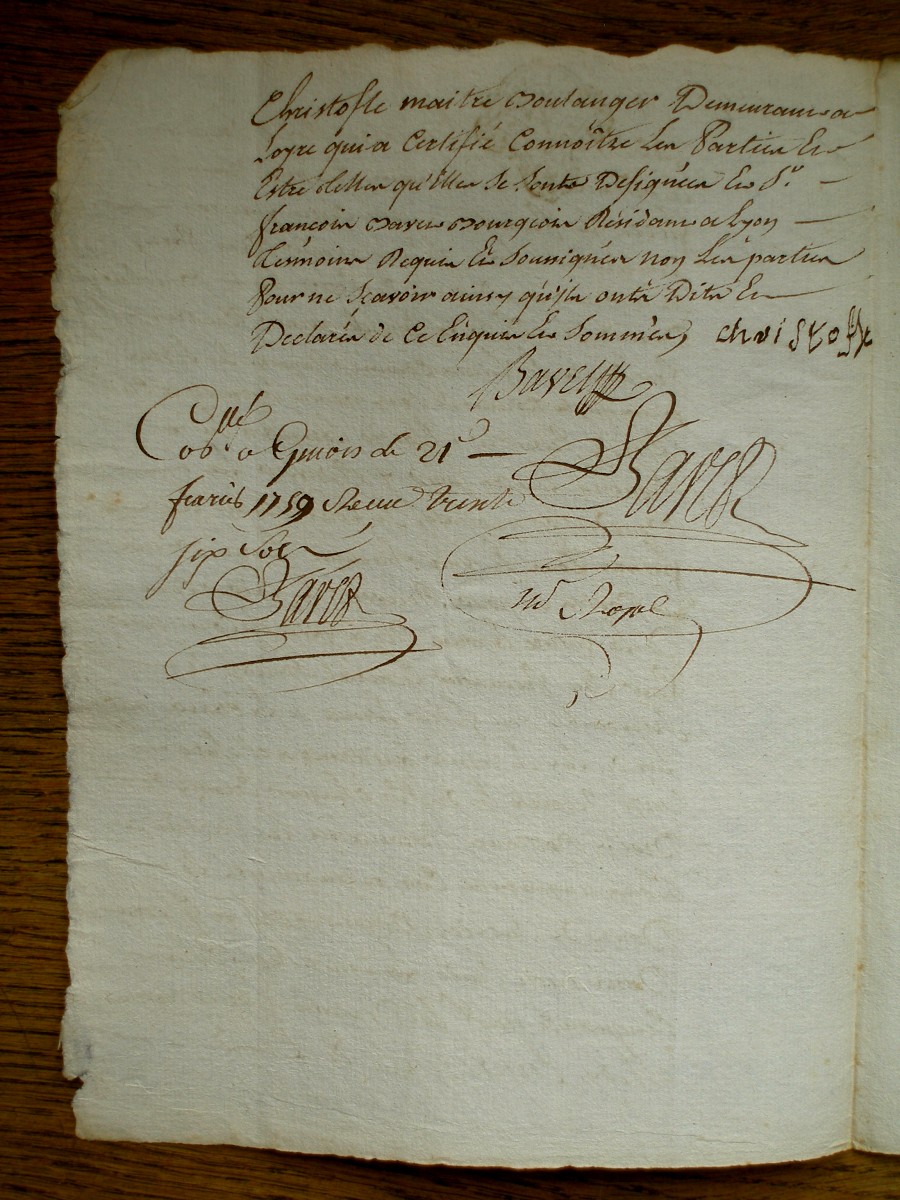 Christofle maitre Boulanger Demeurant a
Loyre qui a Certifié Connoître Les Parties Et
Estre telles qu'illes se sont Designées Et Sr.
françois Bavet Bourgeois Résidant a Lyon
témoins Requis Et soussignés non Les parties
Pour ne scavoir ainsy qu'ils ont Dit Et
Declaré de ce Enquis Et sommés, christofle
Bavet
Collé a de 21e
1759 Receu trente
six sols
Bavet
Bavet
Nre Royal